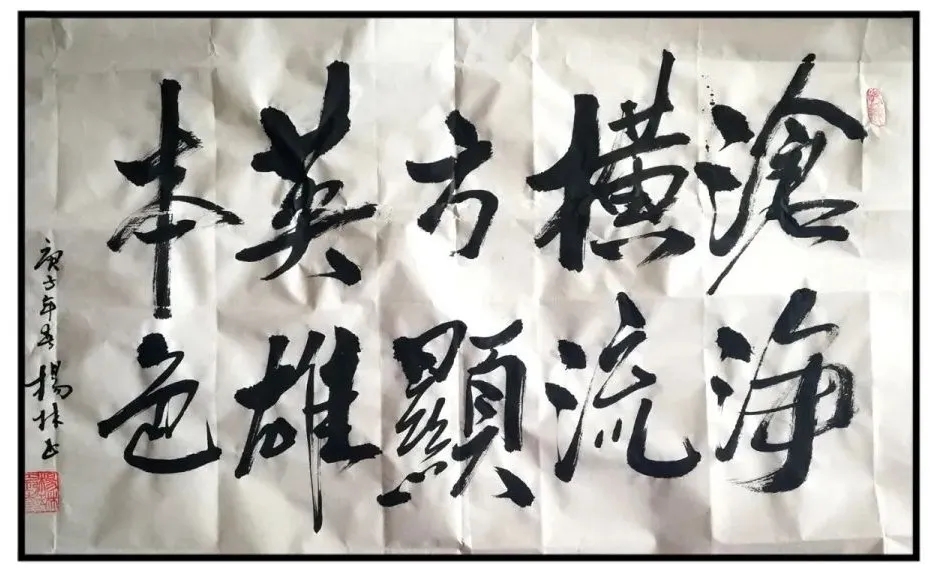 滄海
横流
方顯
英雄
本色
庚子年春楊林